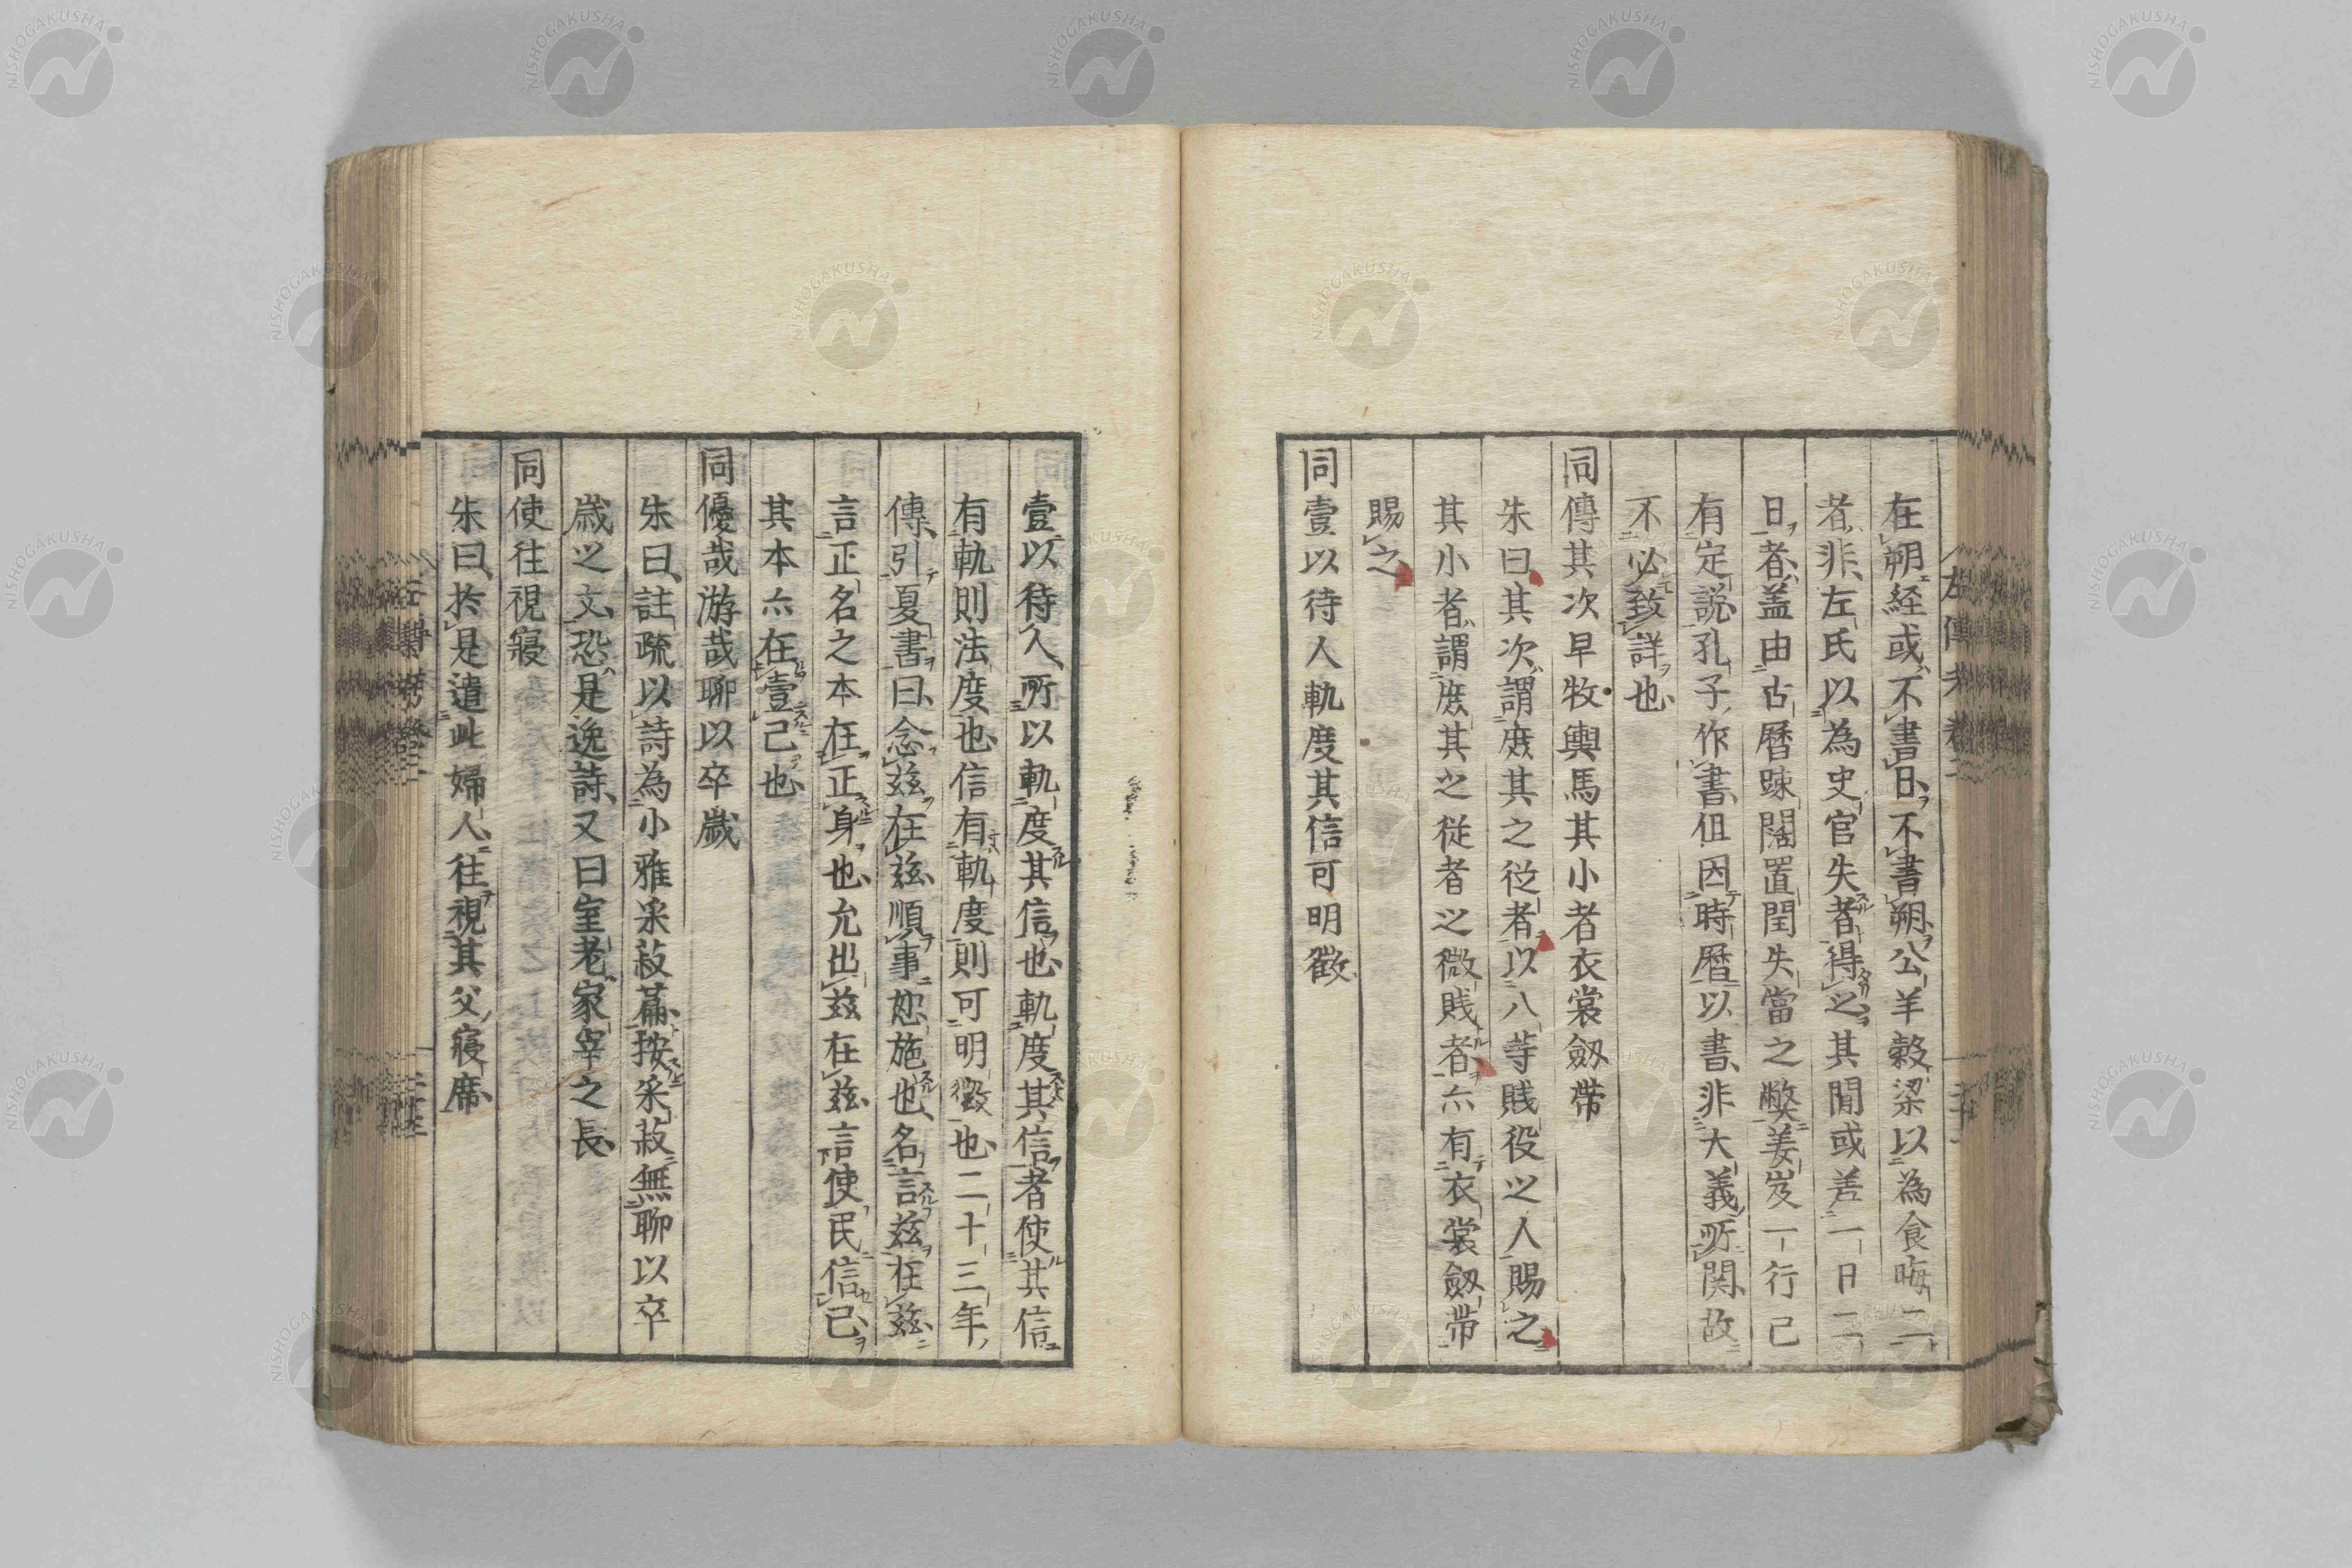 在朔経或不書日不書朔公羊穀梁以為食晦二
者非左氏以為史官失者得之其閒或差一日二
日者盖由古曆踈闊置閏失當之弊姜岌一行己
有定説孔子作書伹因時曆以書非大義所関故
不必致詳也
同傳其次早牧輿馬其小者衣裳劔帶
朱曰其次謂庻其之從者以八等賤役之人賜之
其小者謂庻其之従者之微賎者亦有衣裳劔帶
賜之
同壹以待人軌度其信可明徵
壹以待人所以軌度其信也軌度其信者使其信
有軌則法度也信有軌度則可明徵也二十三年
傳引夏書曰念茲在茲順事恕施也名言茲在茲
言正名之本在正身也允出茲在茲言使民信已
其本亦在壹己也
同優哉游哉聊以卒歲
朱曰註疏以詩為小雅采菽萹按采菽無聊以卒
歲之文恐是逸詩又曰室老家宰之長
同使往視寢
朱曰於是遣此婦人往視其父寢席